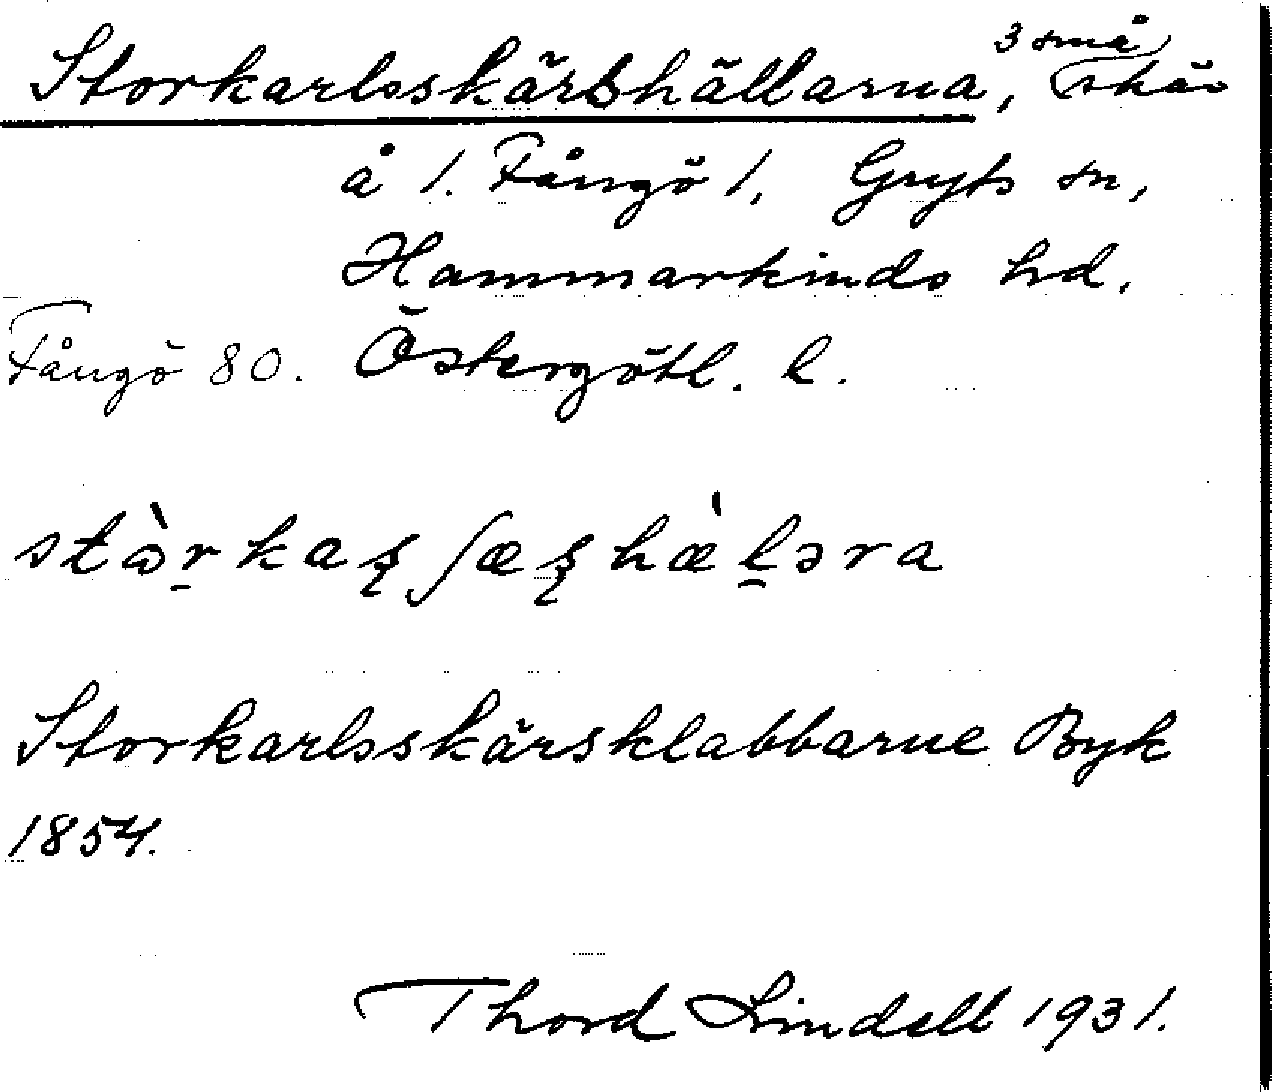 Storkarlsskärshällarna, 3 små skär
å 1. Fångö 1, Gryts sn,
Hammarkinds hd.
Fångö 80. Östergötl. l.
stɷ̀r̠kaʂ ʃæʂhæ̀l̠əra
Storkarlsskärsklabbarne Byk
1854.
Thord Lindell 1931.